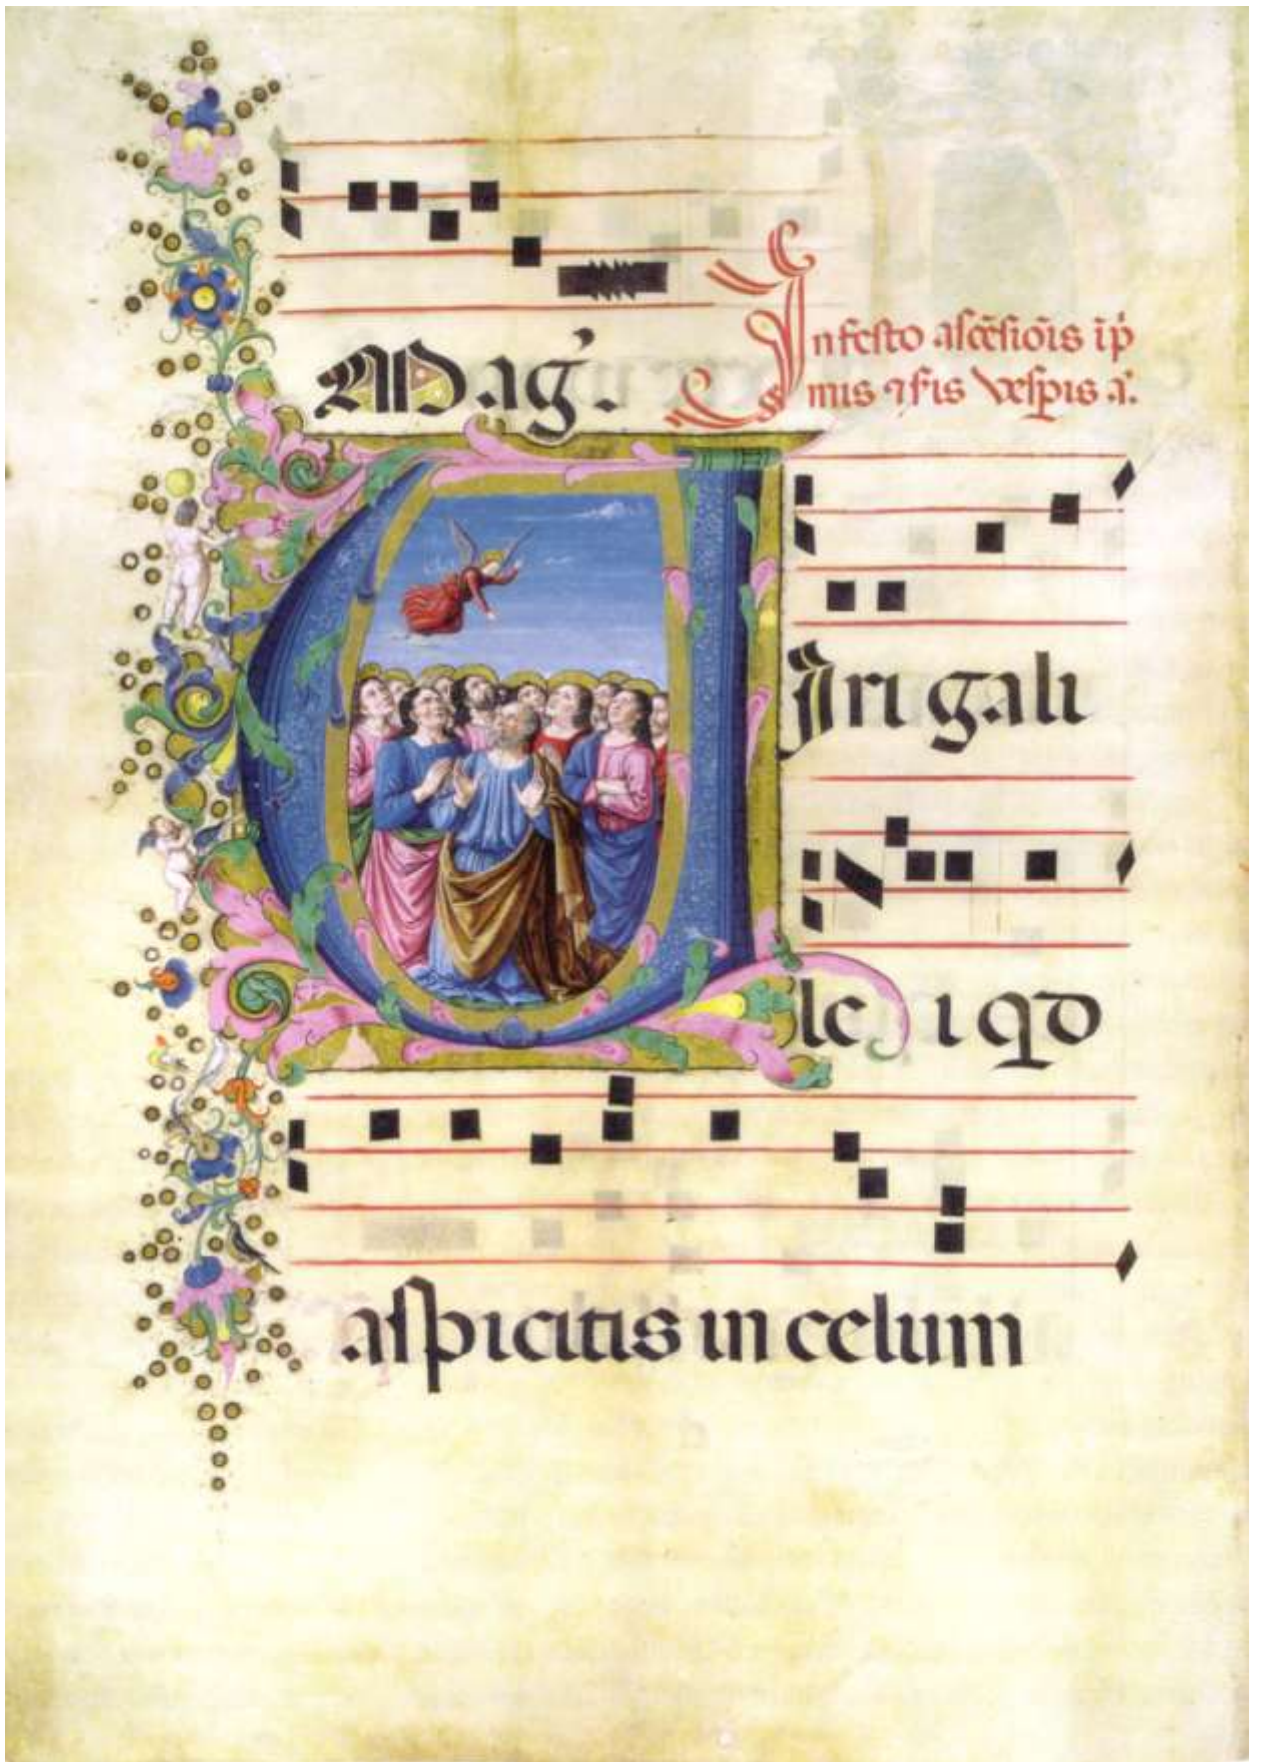 Mag̃.
In festo ascẽsiõis ĩ p̃
mis ⁊ sĩs vesp̃is ã.
Viri gali
lei qd
aspicitis in celum